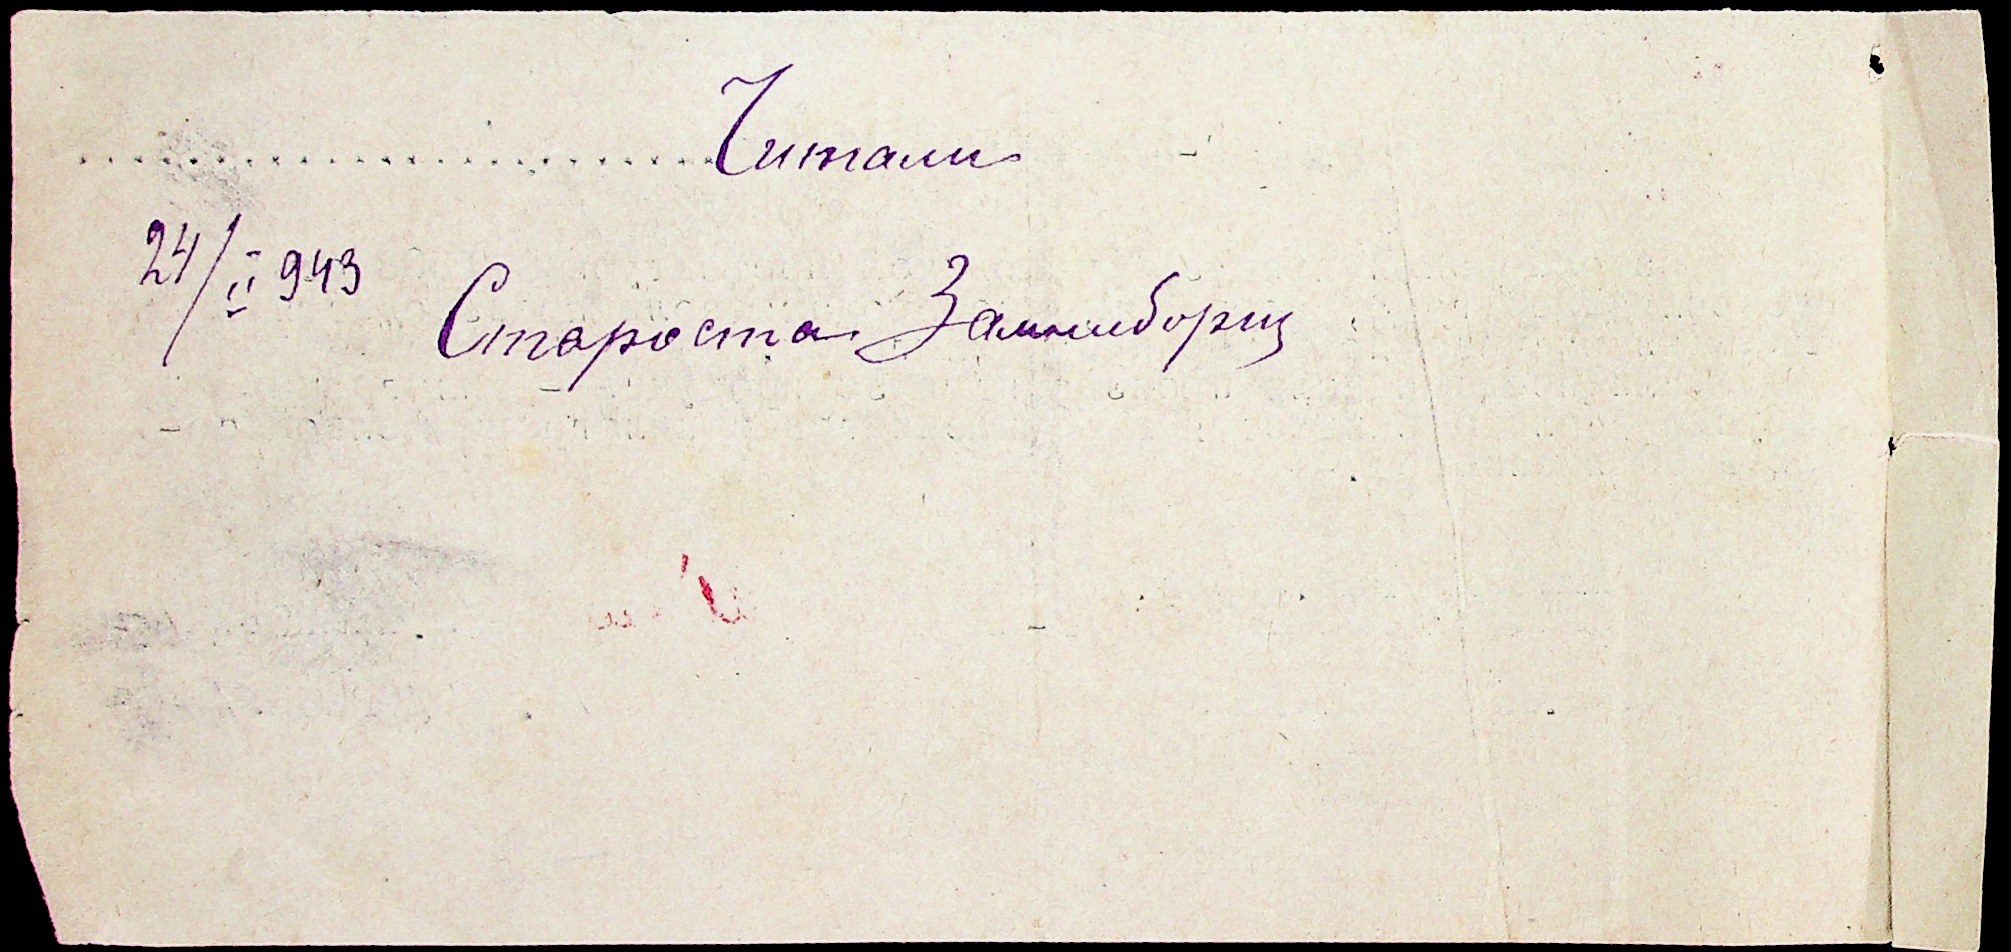 Читали
24/II 943
Староста Замниборщ